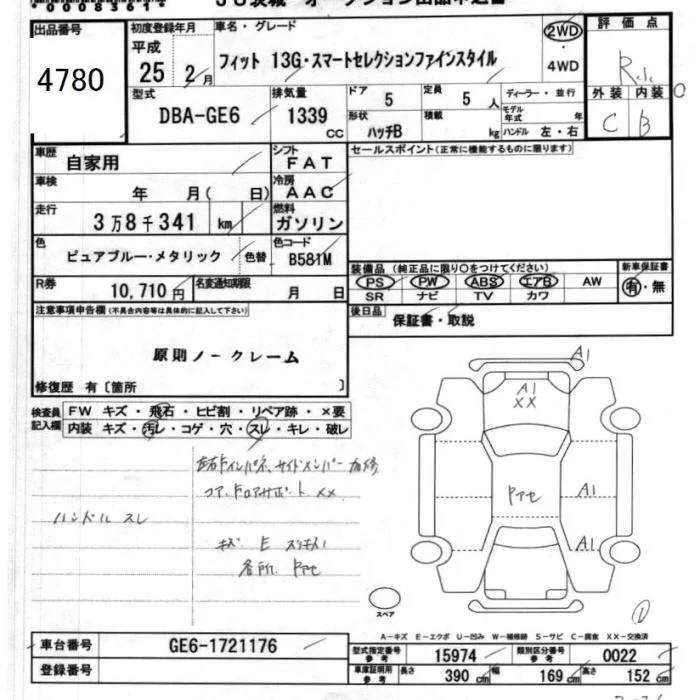 出品番号
4780
初度登録年月
平成
25 2月
車名・グレード
フィット 13G・スマートセレクションファインスタイル
2WD
・
4WD
評価点
外装 内装
C B
型式
DBA-GE6
排気量
1339
CC
ドア
5
定員
5 人
ディーラー・並行
モデル年式 年
形状
ハッチB
積載
kg
ハンドル 左・右
車歴
自家用
シフト
FAT
セールスポイント(正常に機能するものに限ります)
車検
年 月( 日)
冷房
AAC
走行
3万8千341 km
燃料
ガソリン
色
ピュアブルー・メタリック
色替
色コード
B581M
装備品 (純正品に限り○をつけてください)
新車保証書
PS PW ABS エアB AW
有・無
SR ナビ TV カワ
R券
10,710円
名変通知期限
月 日
後日品
保証書・取説
注意事項申告欄(不具合内容等は具体的に記入して下さい)
原則ノークレーム
修復歴 有〔箇所 〕
検査員記入欄
FW キズ・飛石・ヒビ割・リペア跡・×要
内装 キズ・汚レ・コゲ・穴・スレ・キレ・破レ
ハンドル スレ
A1
A1
XX
A1
A1
スペア
A-キズ E-エクボ U-凹み W-補修跡 S-サビ C-腐食 XX-交換済
車台番号
GE6-1721176
型式指定番号
参考
15974
類別区分番号
参考
0022
登録番号
車庫証明用
参考
長さ
390 cm
幅
169 cm
高さ
152 cm